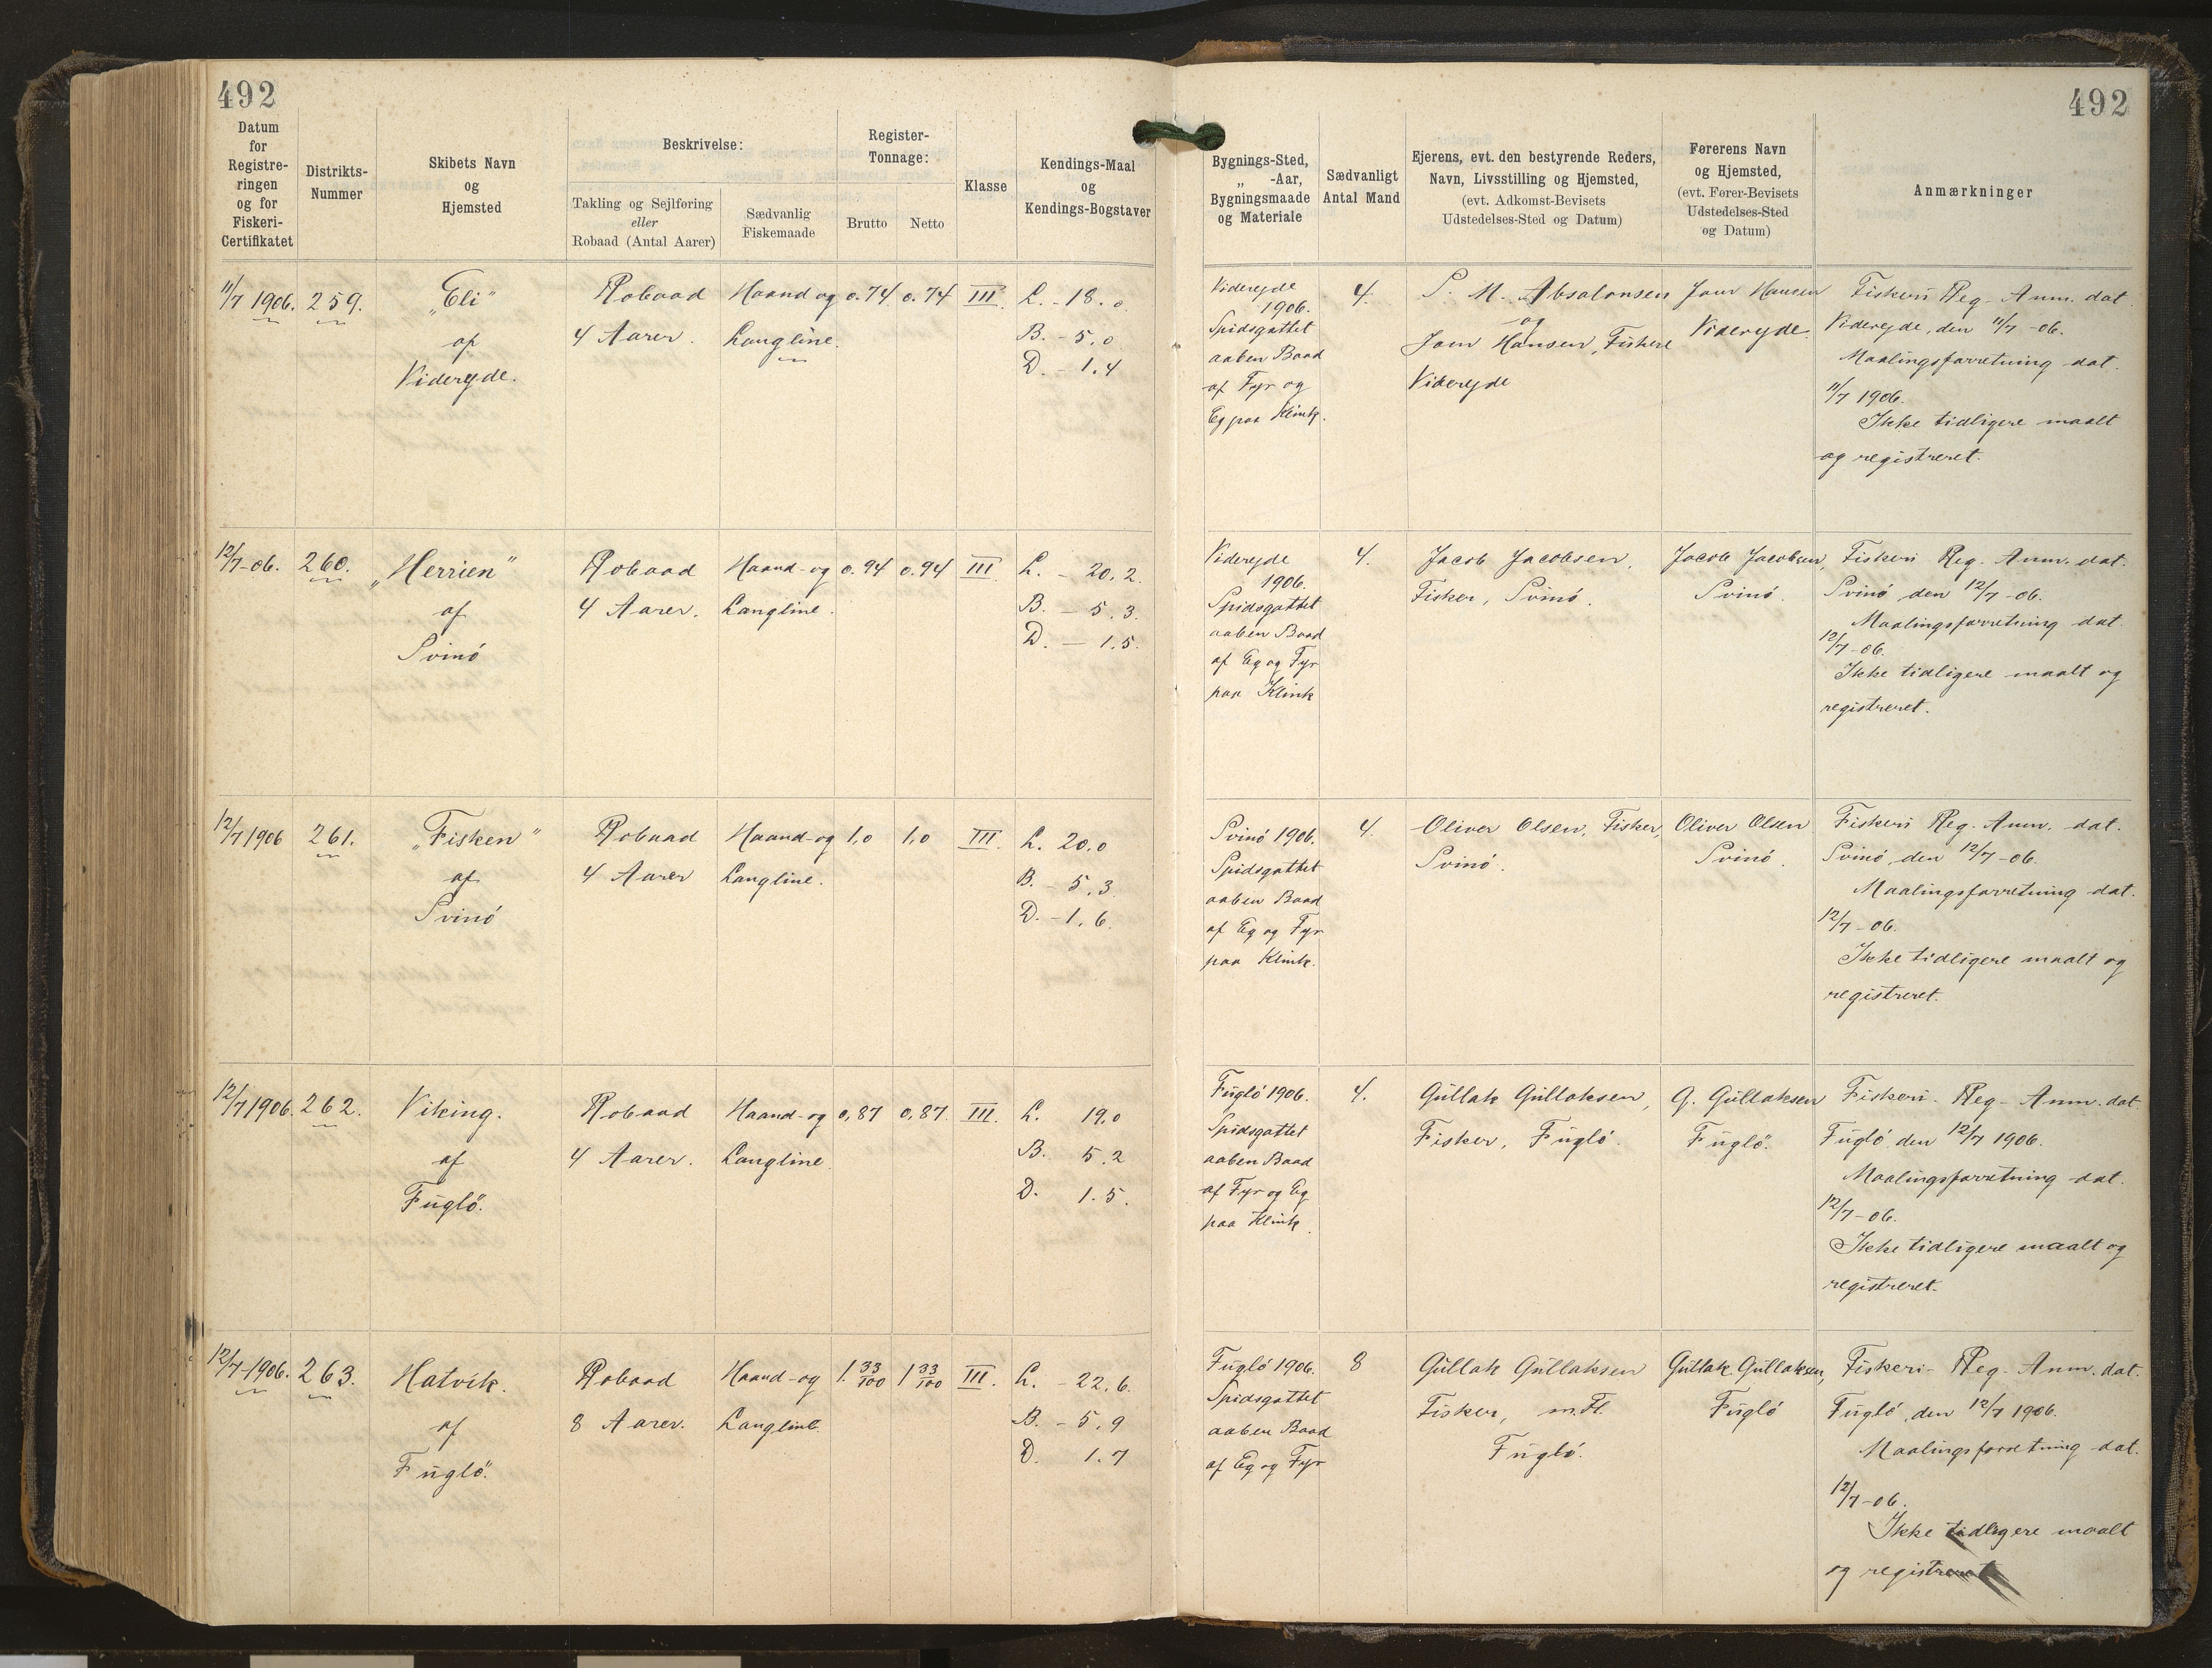 492
492
Datum for Registreringen og for Fiskeri-Certifikatet
Distrikts-Nummer
Skibets Navn og Hjemsted
Beskrivelse:
Takling og Sejlføring eller Robaad (Antal Aarer)
Sædvanlig Fiskemaade
Register-Tonnage:
Brutto
Netto
Klasse
Kendings-Maal og Kendings-Bogstaver
Bygnings-Sted, „ -Aar, Bygningsmaade og Materiale
Sædvanligt Antal Mand
Ejerens, evt. den bestyrende Reders, Navn, Livsstilling og Hjemsted, (evt. Adkomst-Bevisets Udstedelses-Sted og Datum)
Førerens Navn og Hjemsted, (evt. Fører-Bevisets Udstedelses-Sted og Datum)
Anmærkninger
11/7 1906.
259.
„Eli"
af
Viderejde.
Robaad
4 Aarer.
Haand og
Langline.
0.74
0.74
III
L. - 18.0
B. - 5.0
D. - 1.4
Viderejde
1906.
Spidsgattet
aaben Baad
af Fyr og
Eg paa Klink.
4.
S. M. Absalonsen
og
Joen Hansen, Fiskere
Viderejde
Joen Hansen
Viderejde.
Fiskeri Reg. Anm. dat.
Viderejde, den 11/7 -06.
Maalingsforretning dat.
11/7 1906.
Ikke tidligere maalt
og registreret.
12/7-06.
260.
„Herrien"
af
Svinö
Robaad
4 Aarer.
Haand- og
Langline.
0.94
0.94
III
L. - 20.2.
B. - 5.3.
D. - 1.5.
Viderejde
1906.
Spidsgattet
aaben Baad
af Eg og Fyr
paa Klink
4.
Jacob Jacobsen,
Fisker, Svinö.
Jacob Jacobsen,
Svinö.
Fiskeri Reg. Anm. dat.
Svinö, den 12/7 -06.
Maalingsforretning dat.
12/7-06.
Ikke tidligere maalt og
registreret.
12/7 1906
261.
„Fisken"
af
Svinö
Robaad
4 Aarer
Haand- og
Langline.
1,0
1,0
III.
L. 20,0
B. - 5,3
D. - 1,6.
Svinö 1906.
Spidsgattet
aaben Baad
af Eg og Fyr
paa Klink.
4.
Oliver Olsen, Fisker,
Svinö.
Oliver Olsen
Svinö.
Fiskeri Reg. Anm. dat.
Svinö, den 12/7 -06.
Maalingsforretning dat.
12/7 -06.
Ikke tidligere maalt og
registreret.
12/7 1906.
262.
Viking.
af
Fuglö.
Robaad
4 Aarer.
Haand- og
Langline.
0,87
0,87.
III.
L. 19,0
B. 5.2
D. 1.5.
Fuglö 1906.
Spidsgattet
aaben Baad
af Fyr og Eg
paa Klink.
4.
Gullak Gullaksen,
Fisker, Fuglö.
G. Gullaksen
Fuglö.
Fiskeri- Reg- Anm. dat.
Fuglö den 12/7 1906.
Maalingsforretning dat.
12/7-06.
Ikke tidligere maalt og
registreret.
12/7-1906.
263.
Hatvik.
af
Fuglö.
Robaad
8 Aarer.
Haand- og
Langline.
1. 33/100
1 33/100
III.
L. - 22,6.
B. - 5,9
D. 1.7
Fuglö 1906.
Spidsgattet
aaben Baad
af Eg og Fyr
8
Gullak Gullaksen
Fisker, m. Fl.
Fuglö.
Gullak Gullaksen,
Fuglö
Fiskeri- Reg. Anm. dat.
Fuglö, den 12/7 1906.
Maalingsforretning dat.
12/7-06.
Ikke tidligere maalt
og registreret